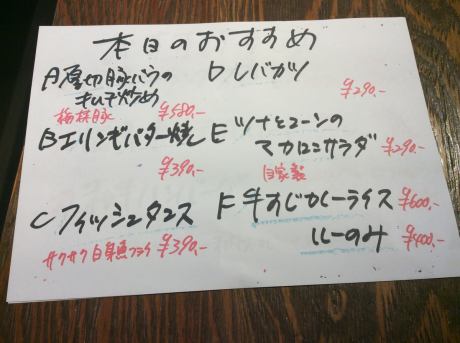 本日のおすすめ
A厚切豚バラの
キムチ炒め
¥580.-
Bエリンギバター焼
¥390.-
Cフィッシュタコス
サクサク白身魚フライ ¥390.-
Dレバカツ
¥290.-
Eツナとコーンの
マカロニサラダ ¥290.-
自家製
F牛すじカレーライス ¥600.-
ルーのみ ¥400.-